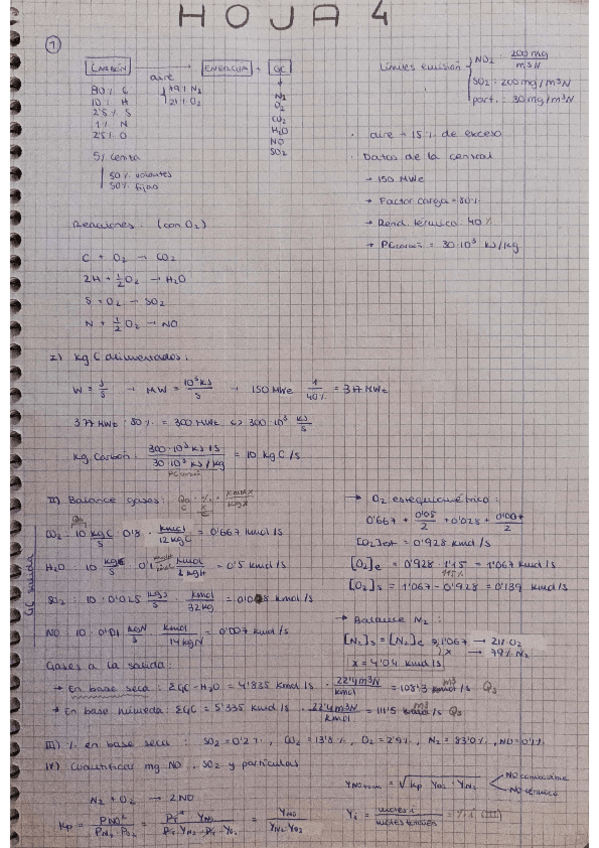 HOJA 4
①
CARBÓN → ENERGÍA + GC
aire
79% N₂
21% O₂
80% C
10% H
2'5% S
1% N
2'5% O
5% Ceniza
50% volantes
50% fijas
N₂
O₂
CO₂
H₂O
NO
SO₂
Límites emisión
NO₂: 200 mg/m³N
SO₂: 200 mg/m³N
part.: 30 mg/m³N
· aire → 15% de exceso
· Datos de la central
→ 150 MWe
→ Factor carga = 80%
→ Rend. térmico 40%
→ PC = 30·10³ kJ/kg
Reacciones: (con O₂)
C + O₂ → CO₂
2H + ½O₂ → H₂O
S + O₂ → SO₂
N + ½O₂ → NO
I) kg C alimentados:
W = J/s → MW = 10³kJ/s → 150 MWe 1/40% = 377 MWt
377 MWt · 80% = 300 MWt ⇔ 300·10³ kJ/s
kg Carbón: 300·10³ kJ/s / 30·10³ kJ/kg = 10 kg C/s
II) Balance gases:
GC salida
CO₂: 10 kgC/s · 0'8 · kmol/12kgC = 0'667 kmol/s
H₂O: 10 · 0'1 · kmol/2kgH = 0'5 kmol/s
SO₂: 10 · 0'025 kgS/s · kmol/32kg = 0'008 kmol/s
NO: 10 · 0'01 kgN/s · kmol/14kgN = 0'007 kmol/s
→ O₂ estequiométrico:
0'667 + 0'5/2 + 0'028 + 0'007/2
[O₂]est = 0'928 kmol/s
[O₂]e = 0'928 · 1'15 = 1'067 kmol/s
[O₂]s = 1'067 - 0'928 = 0'139 kmol/s
→ Balance N₂:
[N₂]s = [N₂]e 1'067 → 21% O₂
x → 79% N₂
x = 4'04 kmol/s
Gases a la salida:
→ En base seca: ΣGC - H₂O = 4'835 kmol/s · 22'4m³N/kmol = 108'3 m³/s Qs
→ En base húmeda: ΣGC = 5'335 kmol/s · 22'4m³N/kmol = 111'5 m³/s Qs
III) % en base seca: SO₂ = 0'2%, CO₂ = 13'8%, O₂ = 2'9%, N₂ = 83'0%, NO = 0'1%
IV) Cuantificar mg NO, SO₂ y partículas
N₂ + O₂ → 2NO
Kp = P_NO² / P_N₂·P_O₂ = / = Y_NO / Y_N₂·Y_O₂
Y_NO = √Kp Y_O₂ Y_N₂
NO combustible
NO térmico
Yi = moles i / moles totales = % i (III)